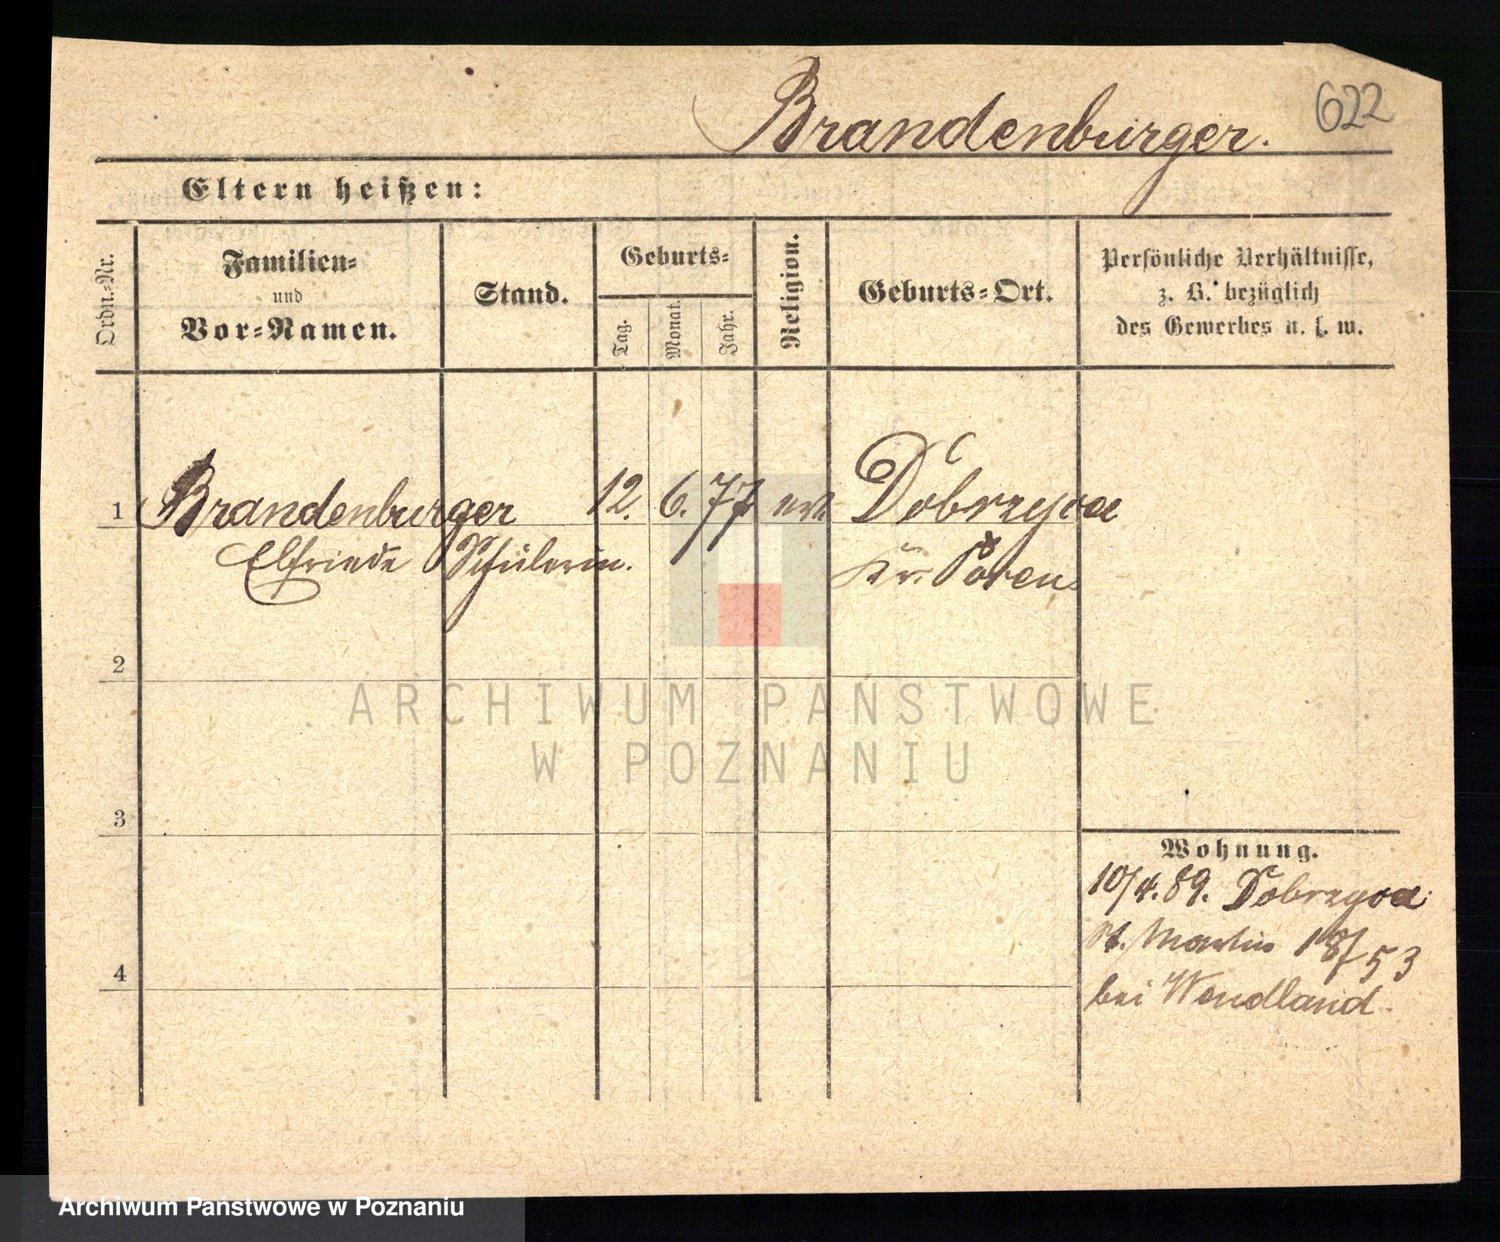 622
Brandenburger.
Eltern heißen:
Ordn.-Nr.
Familien-
und
Vor-Namen.
Stand.
Geburts-
Tag.
Monat.
Jahr.
Religion.
Geburts-Ort.
Persönliche Verhältnisse,
z. B. bezüglich
des Gewerbes u. s. w.
1 Brandenburger 12. 6. 77 Dobrzyca
Elfriede Schülerin. Kr.
2
3
4
Wohnung.
10/4.89. Dobrzyca
St. Martin 18/53
bei Wendland.
ARCHIWUM PAŃSTWOWE
W POZNANIU
Archiwum Państwowe w Poznaniu